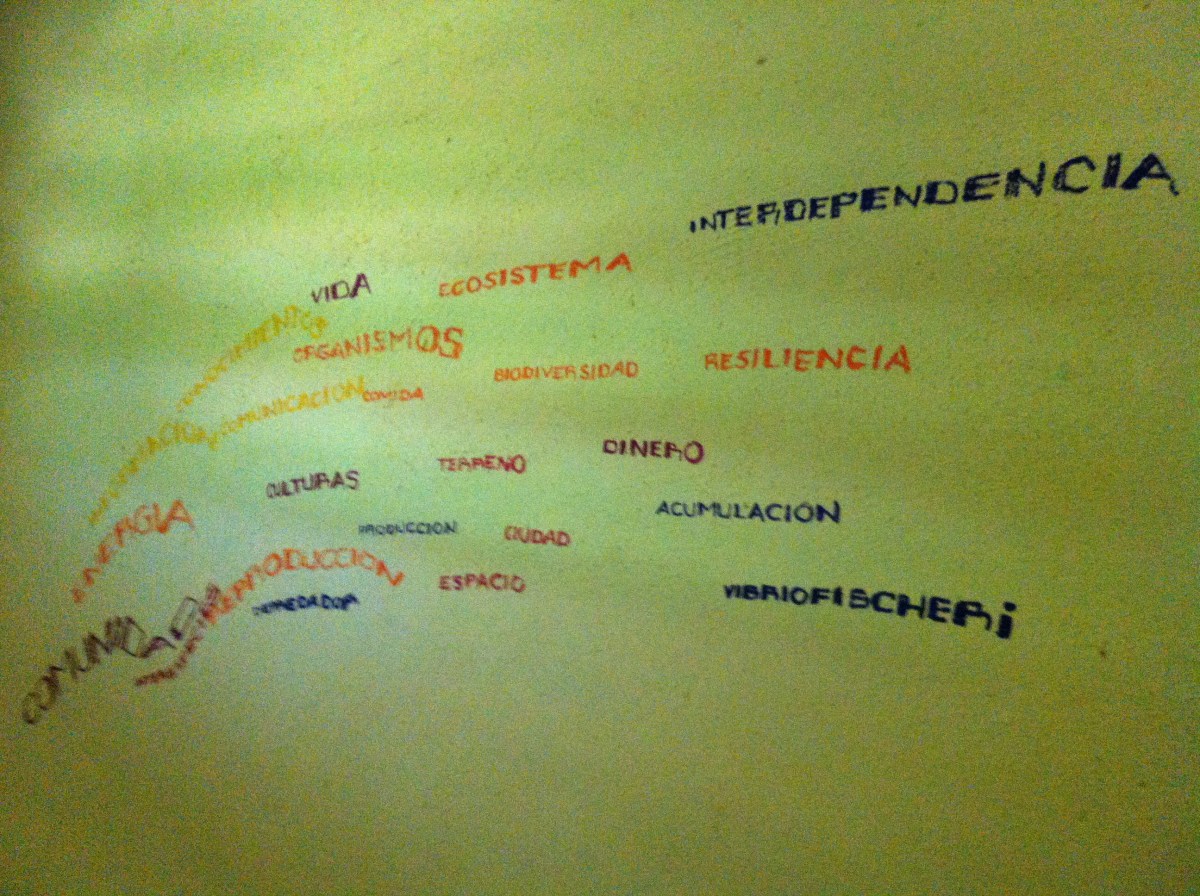 INTERDEPENDENCIA
VIDA
ECOSISTEMA
ORGANISMOS
BIODIVERSIDAD
RESILIENCIA
COMUNICACIÓN
COMIDA
DINERO
TERRENO
CULTURAS
ENERGIA
ACUMULACIÓN
PRODUCCION
CIUDAD
REPRODUCCION
ESPACIO
VIBRIOFISCHERi
COMUNIDADES